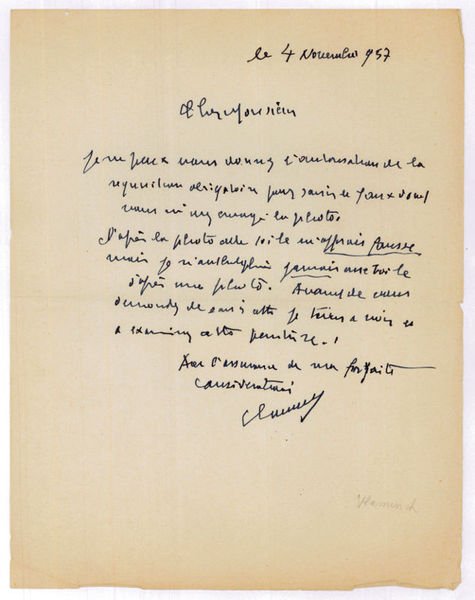 le 4 Novembre 957
Cher Monsieur
Je ne peux vous donner l'autorisation de la
réquisition obligatoire pour saisir ce faux dont
vous m'avez envoyé la photo.
D'après la photo cette toile m'apparais fausse
mais je n'authentifie jamais une toile
d'après une photo. Avant de vous
demander de saisir cette je tiens à voir et
à examiner cette peinture.
Avec l'assurance de ma parfaite
considération
Vlaminck